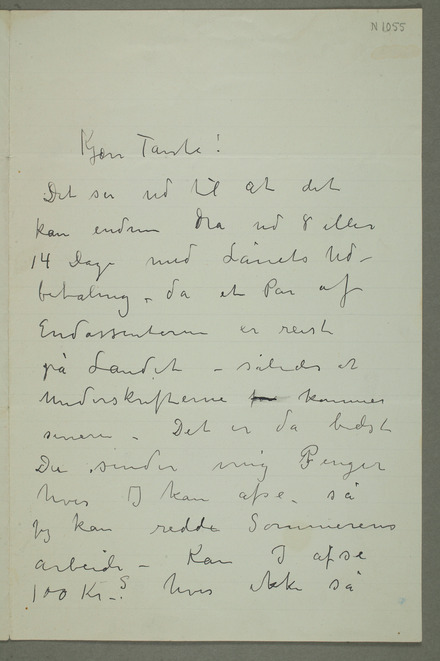 N 1055
Kjære Tante!
Det ser ud til at det
kan endnu dra ud 8 eller
14 Dage med Lånets Ud-
betaling, da et Par af
Endossenterne er reist
på Landet – således at
Underskrifterne kommer
senere – Det er da bedst
Du sender mig Penger
hvis I kan afse – så
jeg kan redde Sommerens
arbeide – Kan I afse
100 Kr –? hvis ikke så